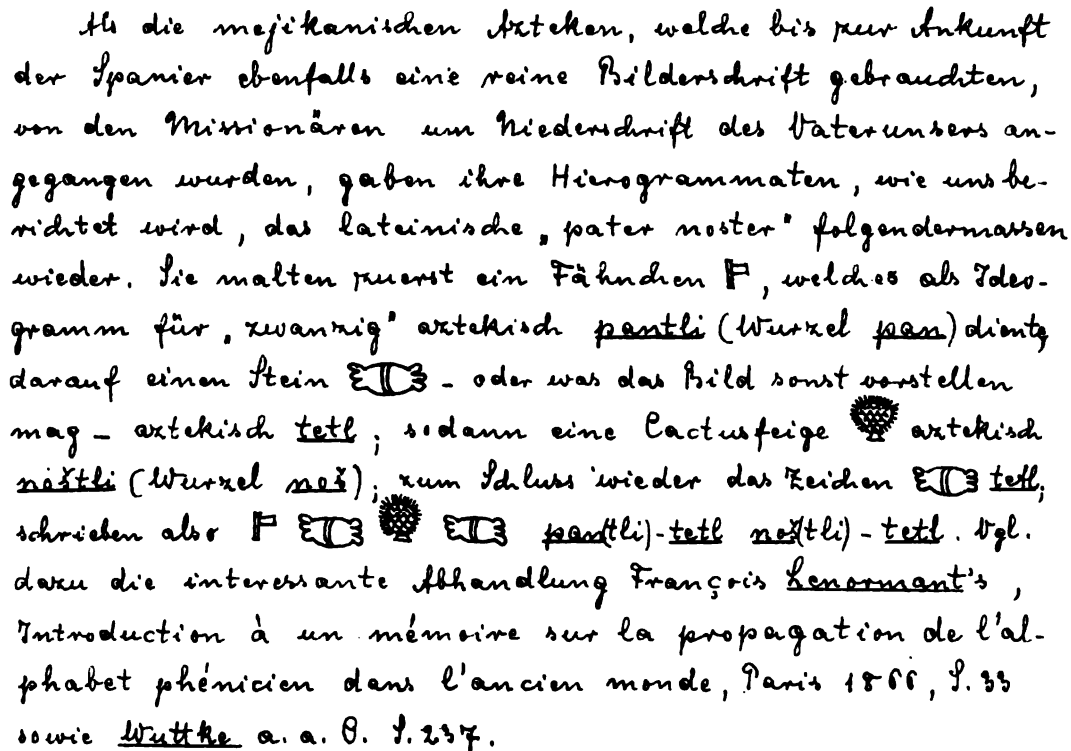 Als die mejikanischen Azteken, welche bis zur Ankunft
der Spanier ebenfalls eine reine Bilderschrift gebrauchten,
von den Missionären um Niederschrift des Vaterunsers an-
gegangen wurden, gaben ihre Hierogrammaten, wie uns be-
richtet wird, das lateinische „pater noster" folgendermassen
wieder. Sie malten zuerst ein Fähnchen, welches als Ideo-
gramm für „zwanzig" aztekisch pantli (Wurzel pan) diente,
darauf einen Stein – oder was das Bild sonst vorstellen
mag – aztekisch tetl; sodann eine Cactusfeige aztekisch
noštli (Wurzel noš); zum Schluss wieder das Zeichen tetl;
schrieben also pan(tli)-tetl noš(tli)-tetl. Vgl.
dazu die interessante Abhandlung François Lenormant's,
Introduction à un mémoire sur la propagation de l'al-
phabet phénicien dans l'ancien monde, Paris 1866, S. 33
sowie Wuttke a. a. O. S. 237.